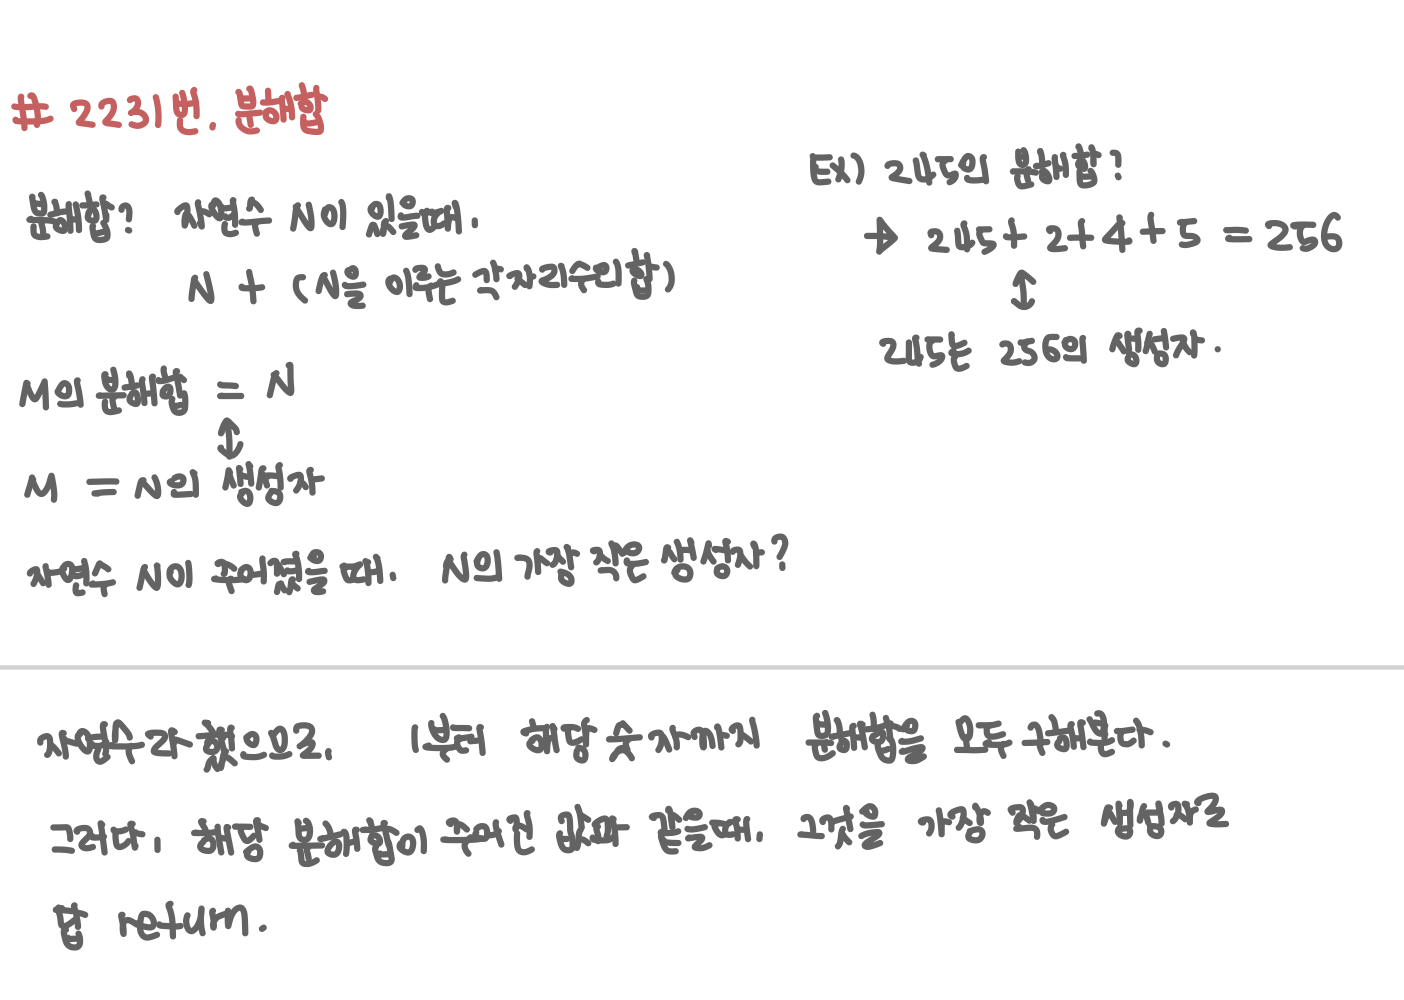 # 2231번. 분해합
분해합? 자연수 N이 있을때,
N + (N을 이루는 각자리수의합)
M의 분해합 = N
↕
M = N의 생성자
자연수 N이 주어졌을때, N의 가장 작은 생성자?
Ex) 245의 분해합?
→ 245+ 2+4+5 = 256
↕
245는 256의 생성자.
자연수라 했으므로, 1부터 해당 숫자까지 분해합을 모두 구해본다.
그러다, 해당 분해합이 주어진 값과 같을때, 그것을 가장 작은 생성자로
답 return.